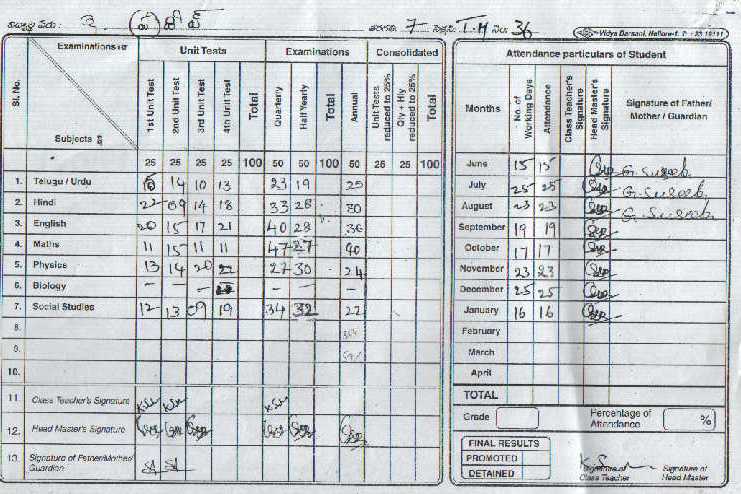 7 I-M 36
Vidya Darsani, Nellore-1.
Examinations
Unit Tests
Examinations
Consolidated
Sl. No.
1st Unit Test
2nd Unit Test
3rd Unit Test
4th Unit Test
Total
Quarterly
Half Yearly
Total
Annual
Unit Tests reduced to 25%
Qly + Hly reduced to 25%
Total
Subjects
25 25 25 25 100 50 50 100 50 25 25 100
1. Telugu / Urdu 14 10 13 23 19 25
2. Hindi 22 09 14 18 33 28 30
3. English 20 15 17 21 40 28 36
4. Maths 11 15 11 11 47 27 40
5. Physics 13 14 20 22 27 30 24
6. Biology – – – – – –
7. Social Studies 12 13 09 19 34 32 22
8.
9.
10.
11 Class Teacher's Signature
12. Head Master's Signature
13. Signature of Father/Mother/
Guardian
Attendance particulars of Student
Months
No. of Working Days
Attendance
Class Teacher's Signature
Head Master's Signature
Signature of Father/
Mother / Guardian
June 15 15
July 25 25
August 23 23
September 19 19
October 17 17
November 23 23
December 25 25
January 16 16
February
March
April
TOTAL
Grade
Percentage of
Attendance
%
FINAL RESULTS
PROMOTED
DETAINED
Signature of
Class Teacher
Signature of
Head Master